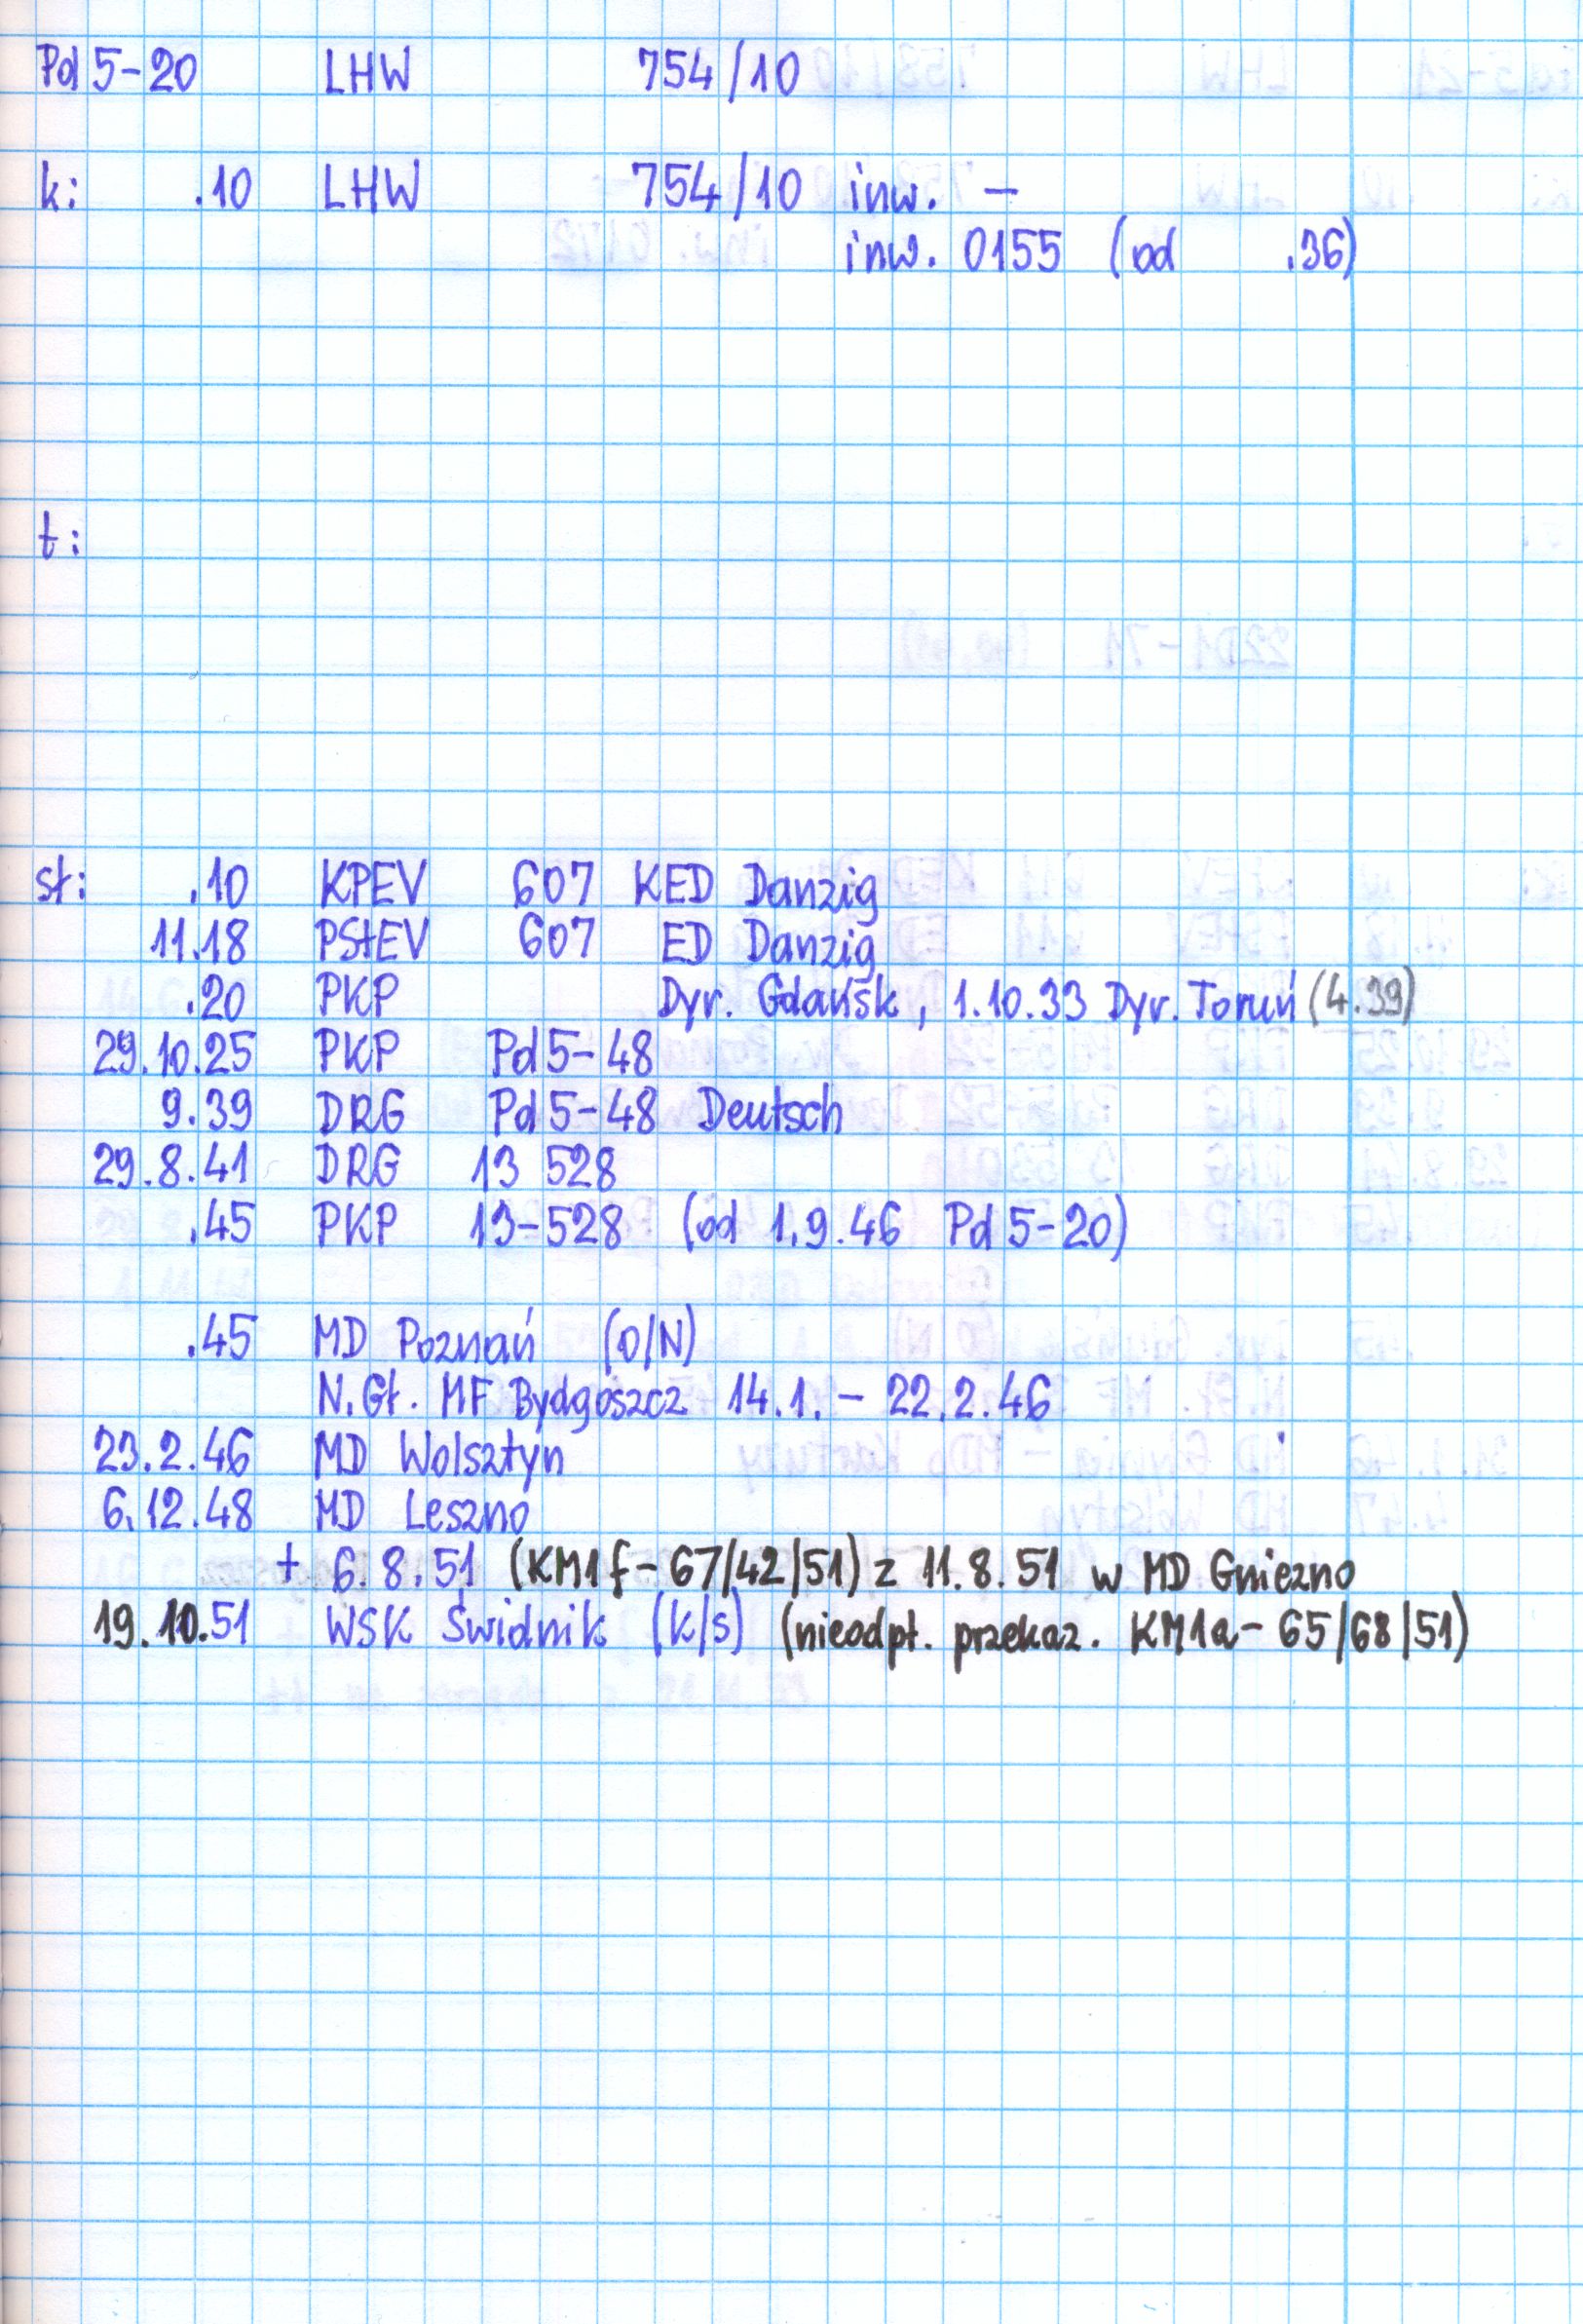 Pd 5-20 LHW 754/10
k: .10 LHW 754/10 inw. –
inw. 0155 (od .36)
t:
st: .10 KPEV 607 KED Danzig
11.18 PStEV 607 ED Danzig
.20 PKP Dyr. Gdańsk, 1.10.33 Dyr. Toruń (4.39)
29.10.25 PKP Pd 5-48
9.39 DRG Pd 5-48 Deutsch
29.8.41 DRG 13 528
.45 PKP 13-528 (od 1.9.46 Pd 5-20)
.45 MD Poznań (O/N)
N.Gł. MF Bydgoszcz 14.1. – 22.2.46
23.2.46 MD Wolsztyn
6.12.48 MD Leszno
+ 6.8.51 (KM1f-67/42/51) z 11.8.51 w MD Gniezno
19.10.51 WSK Świdnik (k/s) (nieodpł. przekaz. KM1a-65/68/51)